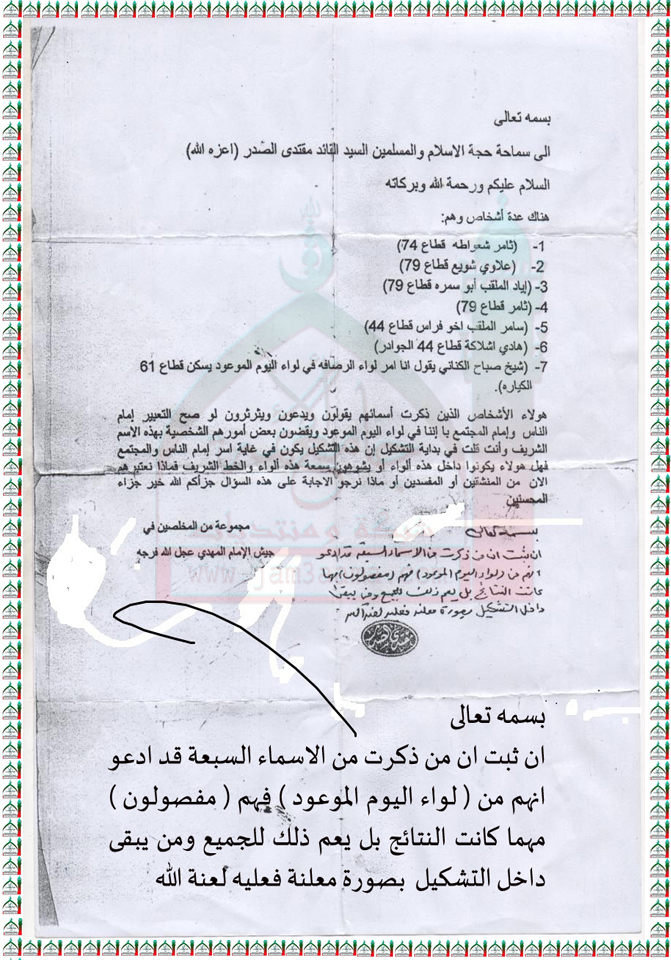 بسمه تعالى
الى سماحة حجة الاسلام والمسلمين السيد القائد مقتدى الصدر (اعزه الله)
السلام عليكم ورحمة الله وبركاته
هناك عدة أشخاص وهم:
1- (ثامر شعواطه قطاع 74)
2- (علاوي شويع قطاع 79)
3- (إياد الملقب أبو سمره قطاع 79)
4- (ثامر قطاع 79)
5- (سامر الملقب اخو فراس قطاع 44)
6- (هادي اشلاكة قطاع 44 الجوادر)
7- (شيخ صباح الكناني يقول انا امر لواء الرصافه في لواء اليوم الموعود يسكن قطاع 61
الكياره).
هولاء الأشخاص الذين ذكرت أسمائهم يقولون ويدعون ويثرثرون لو صح التعبير إمام
الناس وإمام المجتمع با إننا في لواء اليوم الموعود ويقضون بعض أمورهم الشخصية بهذه الاسم
الشريف وأنت قلت في بداية التشكيل إن هذه التشكيل يكون في غاية اسر إمام الناس والمجتمع
فهل هولاء يكونوا داخل هذه ألواء أو يشوهون سمعة هذه ألواء والخط الشريف فماذا نعتبرهم
الان من المنشقين أو المفسدين أو ماذا نرجو الاجابة على هذه السؤال جزأكم الله خير جزاء
المحسنين
مجموعة من المخلصين في
جيش الإمام المهدي عجل الله فرجه
بسمه تعالى
ان ثبت ان من ذكرت من الاسماء السبعة قد ادعو
انهم من (لواء اليوم الموعود) فهم (مفصولون) مهما
كانت النتائج بل يعم ذلك للجميع ومن يبقى
داخل التشكيل بصورة معلنة فعليه لعنة الله
بسمه تعالى
ان ثبت ان من ذكرت من الاسماء السبعة قد ادعو
انهم من ( لواء اليوم الموعود ) فهم ( مفصولون )
مهما كانت النتائج بل يعم ذلك للجميع ومن يبقى
داخل التشكيل بصورة معلنة فعليه لعنة الله